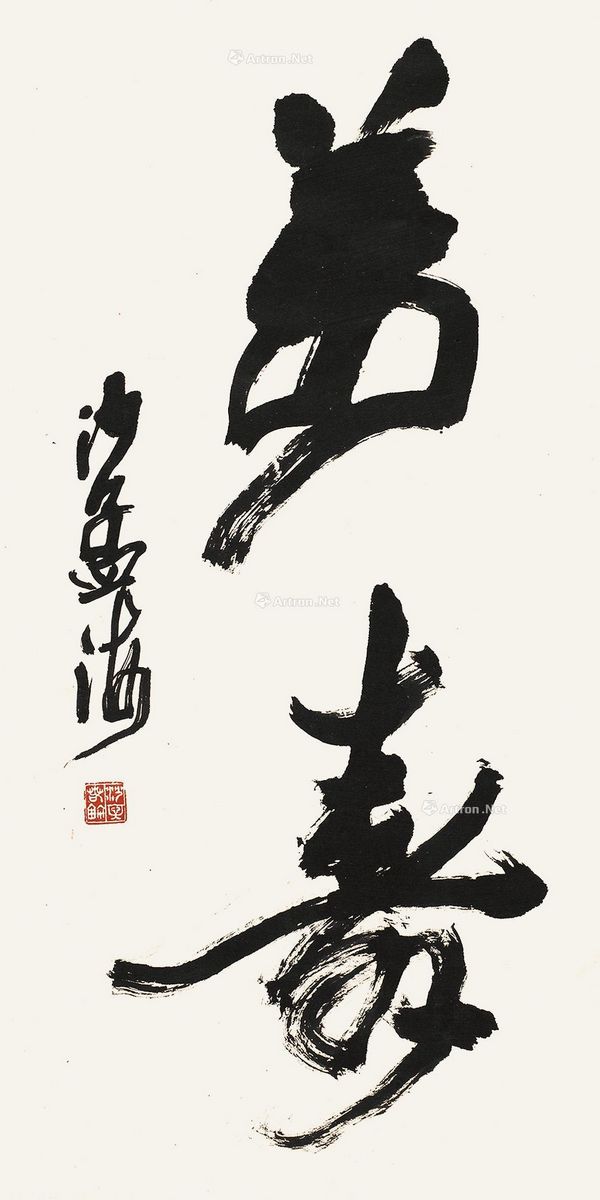 益寿
沙孟海
Artron.Net
Artron.Net
Artron.Net